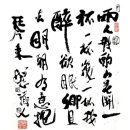 两人对酌山花开一
杯一杯复一杯我
醉欲眠卿且
去明朝有意抱
琴来